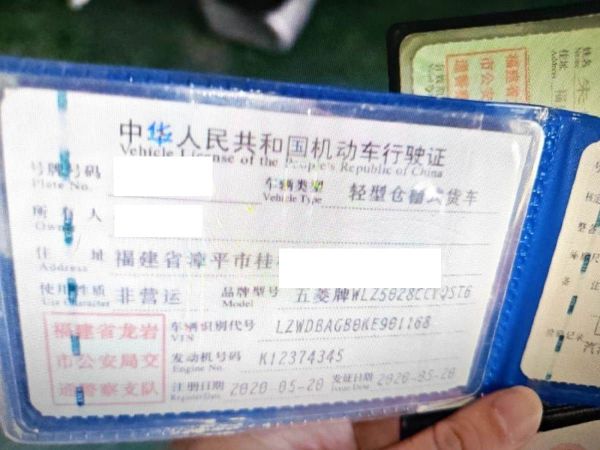 中华人民共和国机动车行驶证
Vehicle License of the People's Republic of China
号牌号码
Plate No.
车辆类型 轻型仓栅式货车
Vehicle Type
所有人
Owner
住址 福建省漳平市桂
Address
使用性质 非营运 品牌型号 五菱牌WLZ5028CCYQST6
Use Character Model
福建省龙岩
市公安局交
通警察支队
车辆识别代号 LZWDBAGB0KE901168
VIN
发动机号码 K12374345
Engine No.
注册日期 2020-05-20 发证日期 2020-05-20
Register Date Issue Date
姓名
Name
住址 福
Address
福建省
市公安
道警察